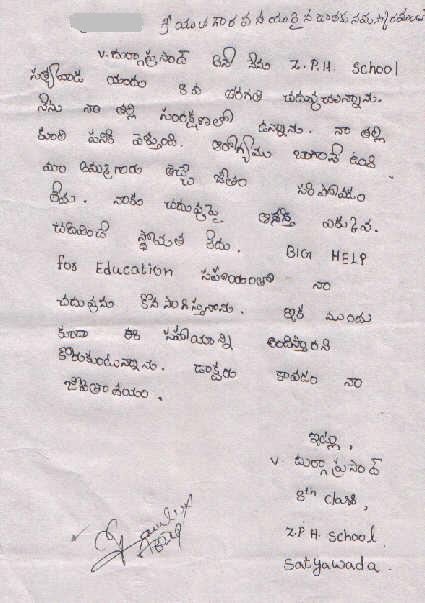 శ్రీ యుత గౌరవనీయులైన దాతకు నమస్కరించి
V. దుర్గా ప్రసాద్ అనే నేను Z.P.H. School
సత్యవాడ యందు 8వ తరగతి చదువుచున్నాను.
నేను నా తల్లి సంరక్షణలో ఉన్నాను. నా తల్లి
కూలి పనికి వెళ్తుంది. ఆరోగ్యము బాగానే ఉంది.
మా అమ్మగారు తెచ్చే జీతం సరిపోవడం
లేదు. నాకు చదువుపై ఆసక్తి ఎక్కువ.
చదివించే స్థోమత లేదు. BIG HELP
for Education సహాయంతో నా
చదువును కొనసాగిస్తున్నాను. ఇక ముందు
కూడా ఈ సహాయాన్ని అందిస్తారని
కోరుకుంటున్నాను. డాక్టరు కావడం నా
జీవితాశయం.
ఇట్లు,
V. దుర్గా ప్రసాద్
8th Class,
Z.P.H. School
Satyawada.